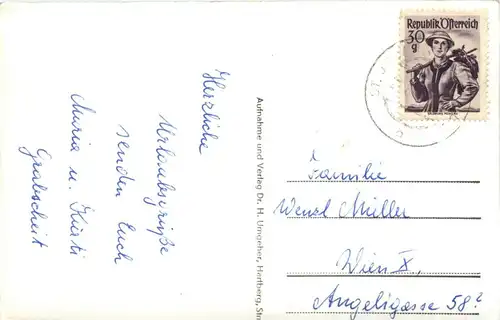 Herzliche
Urlaubsgrüße
senden Euch
Maria u. Kurti
Grabscheit
Aufnahme und Verlag Dr. H. Umgeher, Hartberg, Str
Republik Österreich
30
g
Familie
Wenzl Müller
Wien X,
Angeligasse 58?